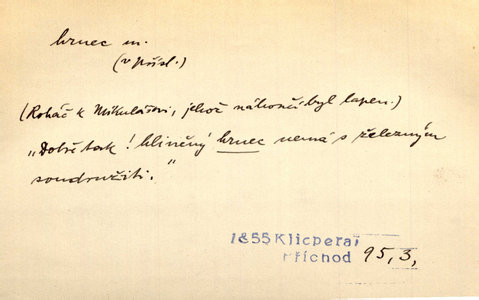 hrnec m.
(v přísl.)
(Roháč k Mikulášovi, jehož náhončí byl lapen.)
„Dobře tak! hliněný hrnec nemá s železným
soudružiti.“
1855 Klicpera
Příchod 95, 3,